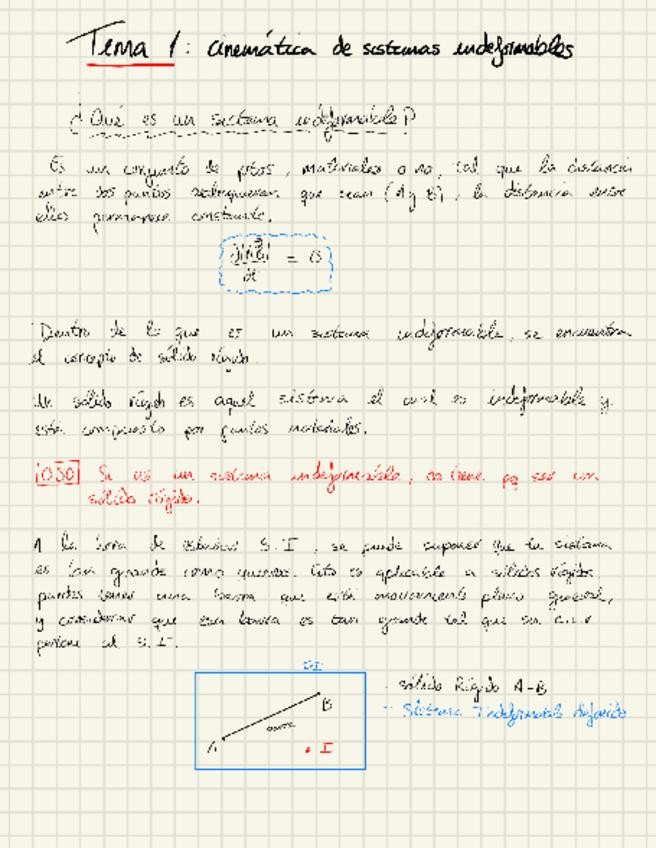 Tema 1: cinemática de sistemas indeformables
¿Qué es un sistema indeformable?
Es un conjunto de ptos, materiales o no, tal que la distancia
entre dos puntos cualesquieran que sean (A y B), la distancia entre
ellos permanece constante.
= 0
dt
Dentro de lo que es un sistema indeformable, se encuentra
el concepto de sólido rígido.
Un sólido rígido es aquel sistema el cual es indeformable y
está compuesto por puntos materiales.
¡OJO! Si es un sistema indeformable, no tiene pq ser un
sólido rígido.
A la hora de estudiar S.I, se puede suponer que tu sistema
es tan grande como quieras. Esto es aplicable a sólidos rígidos,
puedes tener una barra que está movimiento plano general,
y considerar que esa barra es tan grande tal que su c.i.r
pertene al S.I.
SI
B
barra
A
I
- sólido Rígido A-B
- Sistema Indeformable definido